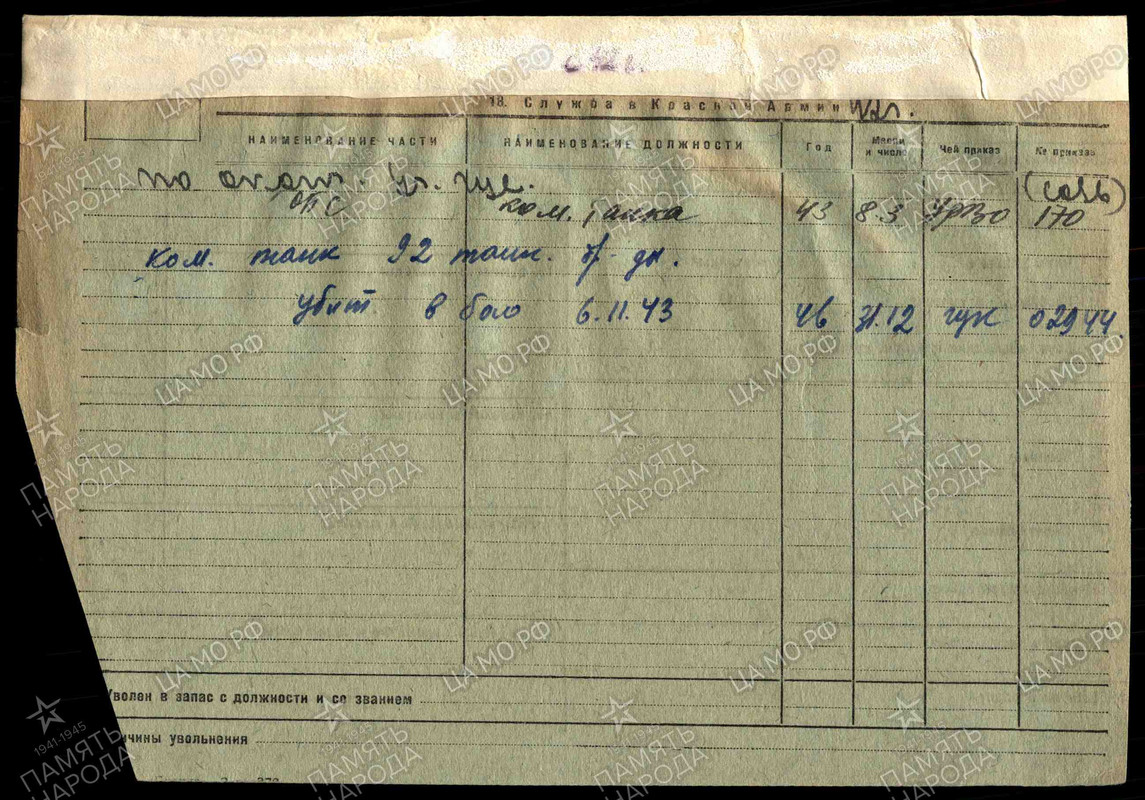 18. Служба в Красной Армии
НАИМЕНОВАНИЕ ЧАСТИ НАИМЕНОВАНИЕ ДОЛЖНОСТИ Год Месяц и число Чей приказ № приказа
по
ОПС ком. танка 43 8.3 УрВО 170
ком. танк 92 танк. бр.
убит в бою 6.11.43 46 31.12 гук 02944.
Уволен в запас с должности и со званием
чины увольнения
ЦАМО РФ
1941-1945
ПАМЯТЬ НАРОДА